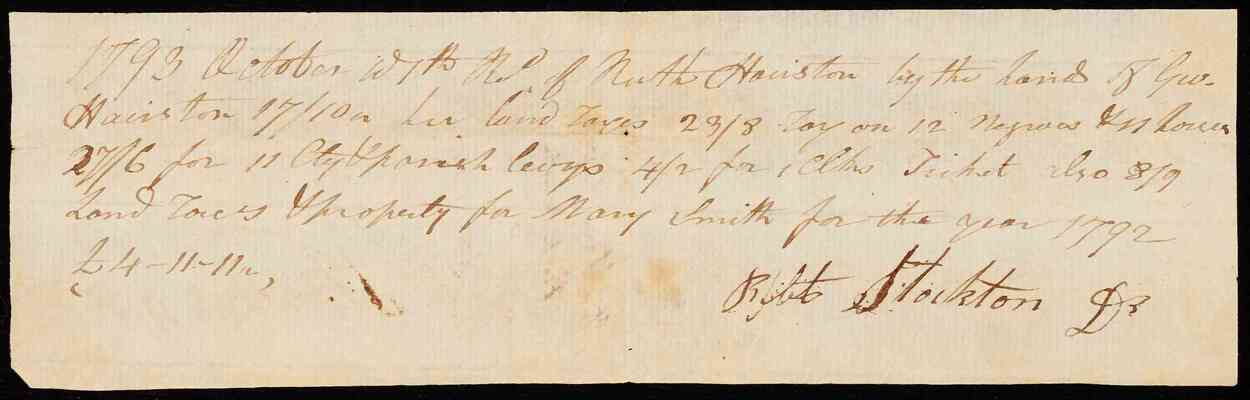 1793 October 10th Recd of Ruth Hairston by the hands of Geo.
Hairston 17/10 on her land Taxes 23/8 Tax on 12 Negroes & 11 horses
27/6 for 11 Cty & parish levys 4/2 for 1 Clks Ticket also 8/9
Land Taxes & property for Mary Smith for the year 1792
£4-11-11
Robt Stockton DS